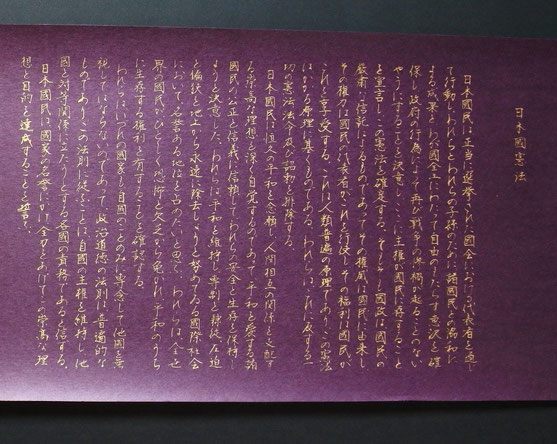 日本國憲法
日本國民は正当に選挙された國会における代表者を通じ
て行動しわれらとわれらの子孫のために諸國民との協和に
よる成果とわが國全土にわたって自由のもたらす恵沢を確
保し政府の行為によって再び戦争の惨禍が起ることのない
やうにすることを決意しここに主権が國民に存すること
を宣言しこの憲法を確定する。そもそも國政は國民の
厳粛な信託によるものであってその権威は國民に由来し
その権力は國民の代表者がこれを行使しその福利は國民が
これを享受する。これは人類普遍の原理でありこの憲法
はかかる原理に基くものである。われらはこれに反する一
切の憲法法令及び詔勅を排除する。
日本國民は恒久の平和を念願し人間相互の関係を支配す
る崇高な理想を深く自覚するのであって平和を愛する諸
國民の公正と信義に信頼してわれらの安全と生存を保持し
ようと決意した。われらは平和を維持し専制と隷従圧迫
と偏狭を地上から永遠に除去しようと努めてゐる國際社会
において名誉ある地位を占めたいと思ふ。われらは全世
界の國民がひとしく恐怖と欠乏から免かれ平和のうち
に生存する権利を有することを確認する。
われらはいづれの國家も自國のことのみに専念して他國を無
視してはならないのであって政治道徳の法則は普遍的な
ものでありこの法則に従ふことは自國の主権を維持し他
國と対等関係に立たうとする各國の責務であると信ずる。
日本國民は國家の名誉にかけ全力をあげてこの崇高な理
想と目的を達成することを誓ふ。